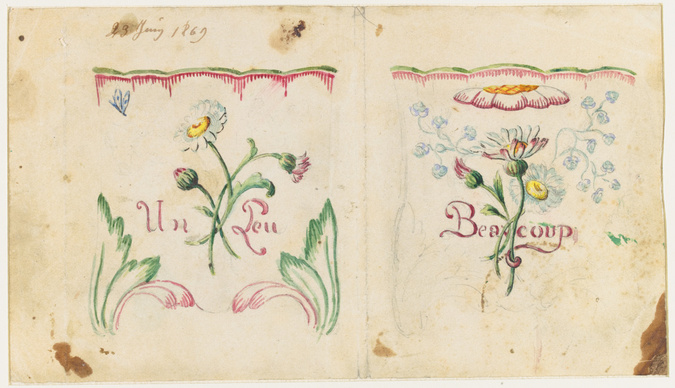 23 Juin 1869
Un Peu
Beaucoup